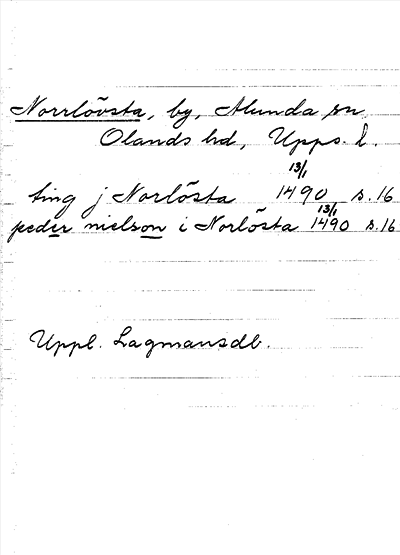 Norrlövsta, by, Alunda sn
Olands hd, Upps. l.
ting j Norlösta 13/1 1490 s. 16
peder nielson i Norlösta 13/1 1490 s. 16
Uppl. Lagmansdb.